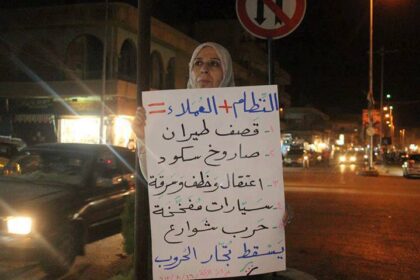 النظام + العملاء =
١- قصف طيران
٢- صاروخ سكود
٣- اعتقال وخطف وسرقة
٤- سيارات مفخخة
٥- حرب شوارع
يسقط تجار الحروب